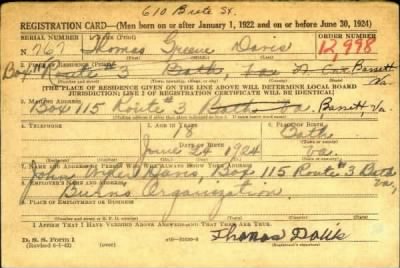 610 Brete St.
REGISTRATION CARD—(Men born on or after January 1, 1922 and on or before June 30, 1924)
SERIAL NUMBER 1. NAME (Print) ORDER NUMBER
N 767 Thomas Greene Davis 12,998
2. PLACE OF RESIDENCE (Print)
Box 115 Route #3 Bath, Va. Barrett, Va.
[THE PLACE OF RESIDENCE GIVEN ON THE LINE ABOVE WILL DETERMINE LOCAL BOARD
JURISDICTION; LINE 2 OF REGISTRATION CERTIFICATE WILL BE IDENTICAL]
3. MAILING ADDRESS
Box 115 Route #3 Bath, Va. Barrett, Va
4. TELEPHONE 5. AGE IN YEARS 6. PLACE OF BIRTH
18 Bath
DATE OF BIRTH
June 24 1924 Va.
7. NAME AND ADDRESS OF PERSON WHO WILL ALWAYS KNOW YOUR ADDRESS
John Davis, Box 115 Route #3 Bath Va,
8. EMPLOYER'S NAME AND ADDRESS
Burns Organization
9. PLACE OF EMPLOYMENT OR BUSINESS
I AFFIRM THAT I HAVE VERIFIED ABOVE ANSWERS AND THAT THEY ARE TRUE.
D. S. S. Form 1
Thomas Davis
(Registrant's signature)